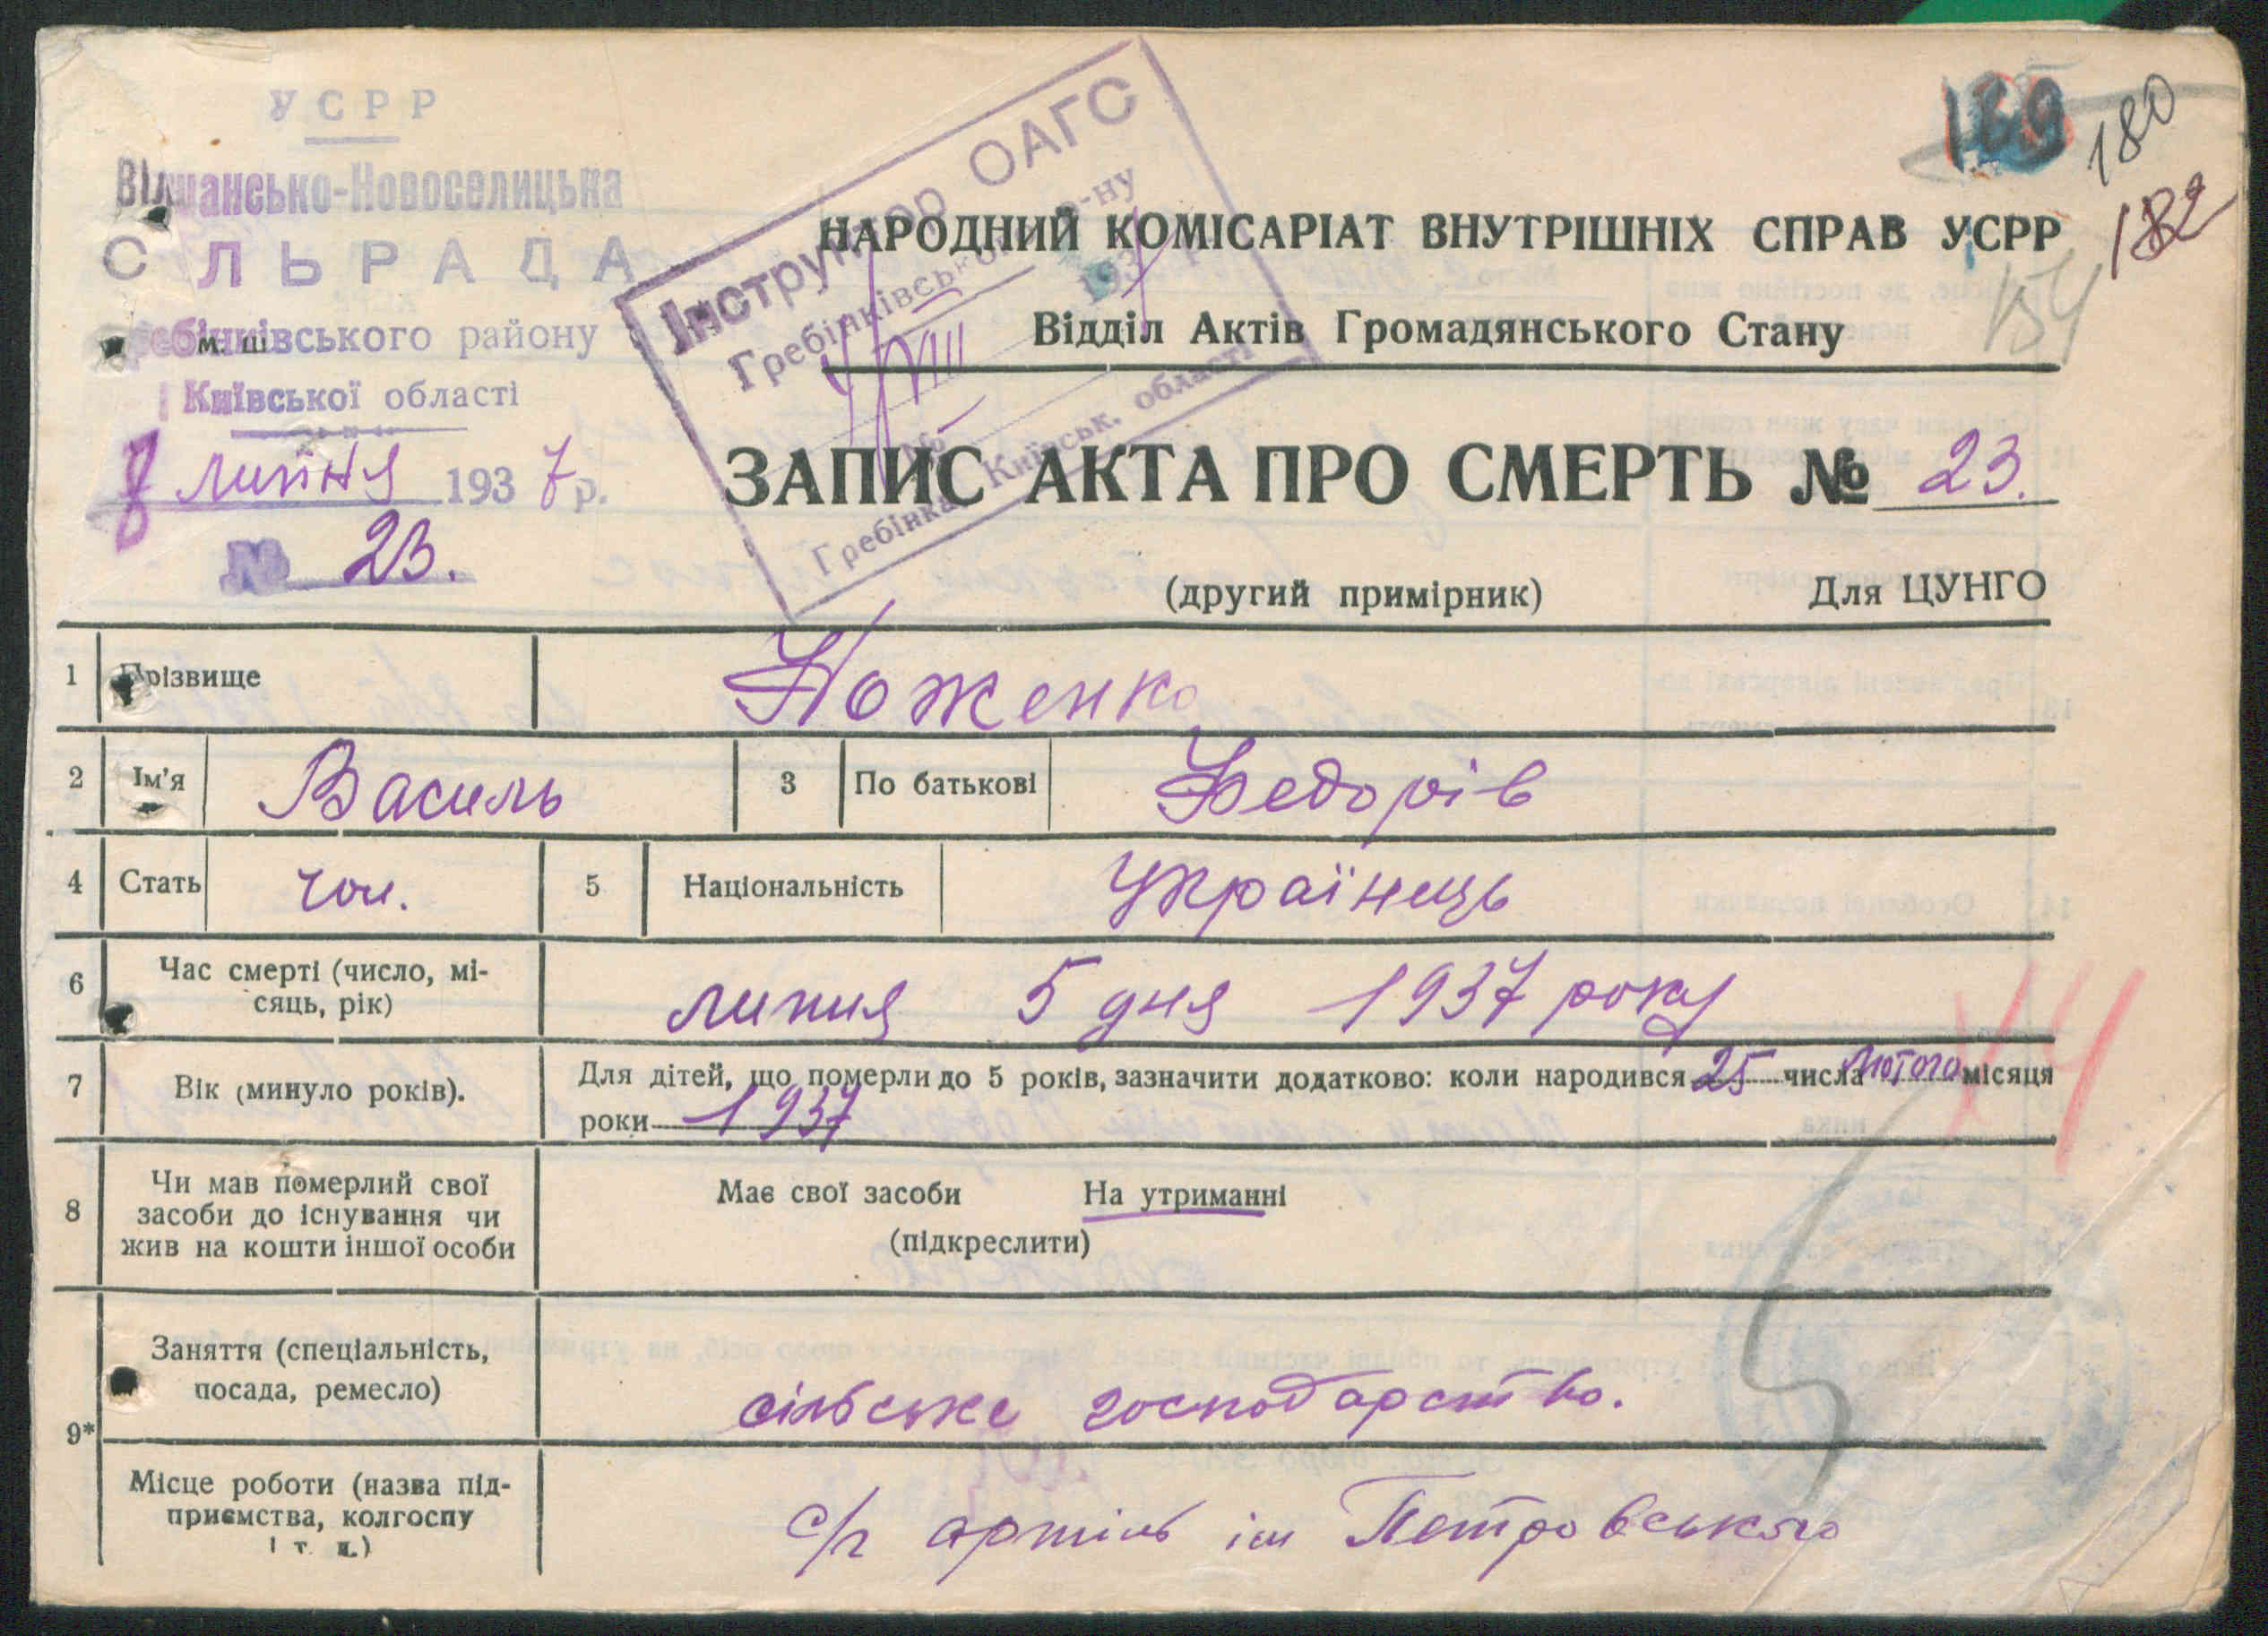 УСРР
Вільшансько-Новоселицька
СІЛЬРАДА
Гребінківського району
Київської області
8 липня 1937 р.
№ 23.
Інструктор ОАГС
Гребінківського р-ну
193 р.
№
Гребінка, Київськ. області
169
180
182
154
НАРОДНИЙ КОМІСАРІАТ ВНУТРІШНІХ СПРАВ УСРР
Відділ Актів Громадянського Стану
ЗАПИС АКТА ПРО СМЕРТЬ № 23.
(другий примірник) Для ЦУНГО
1 Прізвище Ноженко
2 Ім'я Василь 3 По батькові Федорів
4 Стать чол. 5 Національність Українець
6 Час смерті (число, мі-
сяць, рік) липня 5 дня 1937 року
7 Вік (минуло років). Для дітей, що померли до 5 років, зазначити додатково: коли народився 25 числа лютого місяця
роки 1937
8 Чи мав померлий свої
засоби до існування чи
жив на кошти іншої особи
Має свої засоби На утриманні
(підкреслити)
9* Заняття (спеціальність,
посада, ремесло) сільське господарство.
Місце роботи (назва під-
приємства, колгоспу
і т. д.) с/г артіль ім Петровського